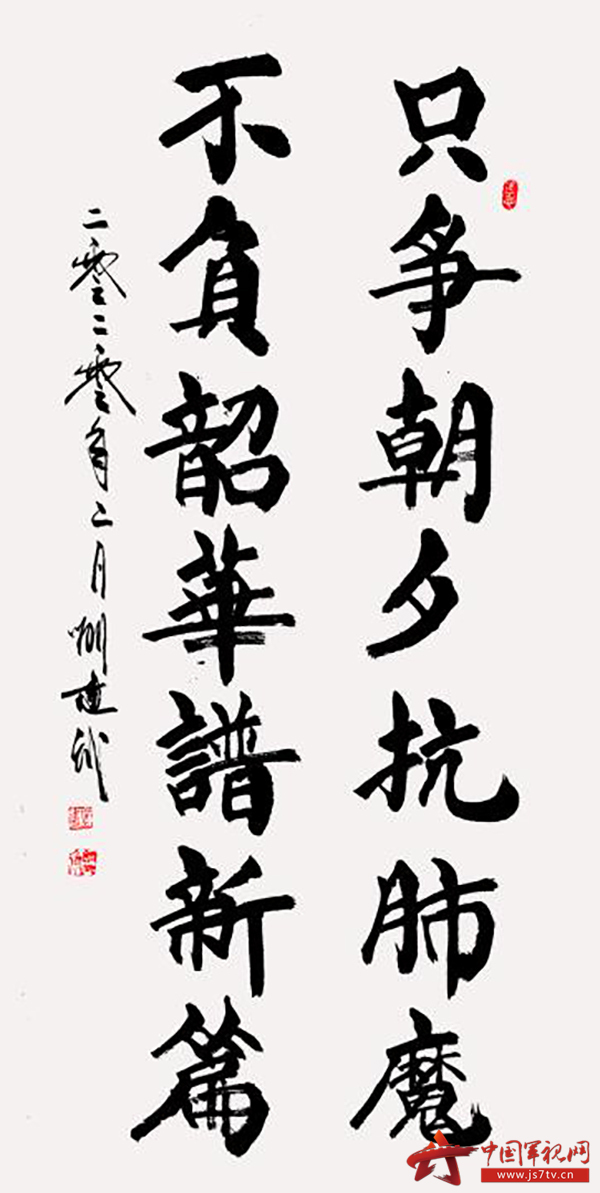 只争朝夕抗肺魔
不負韶華譜新篇
二零二零年二月
中国军视网
www.js7tv.cn